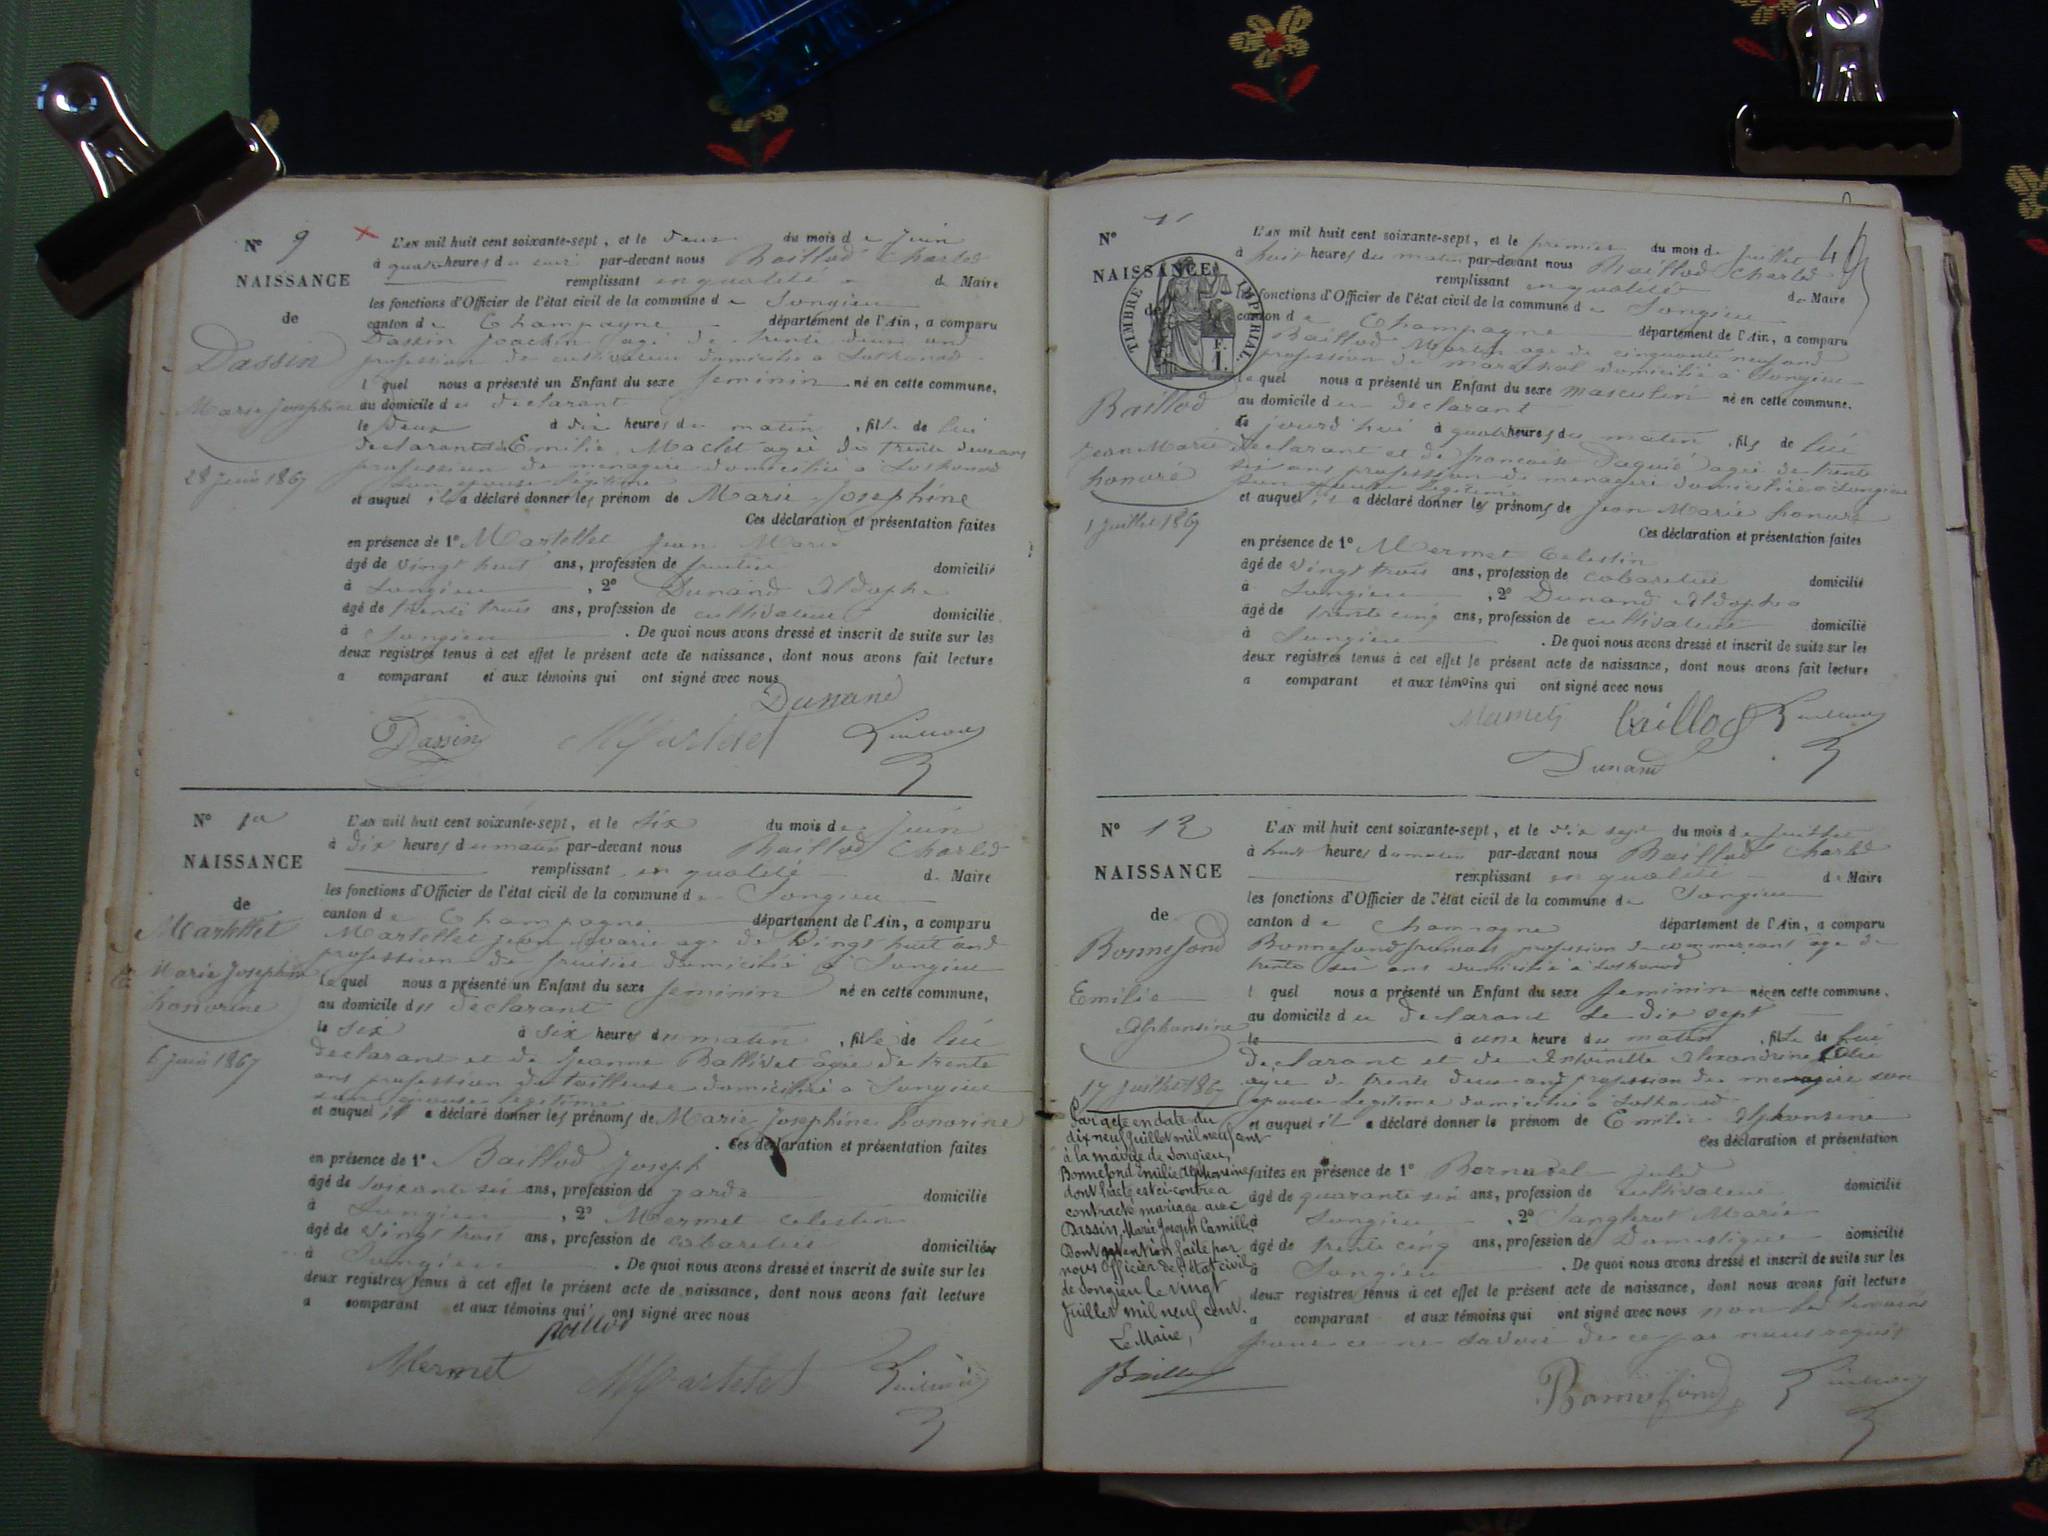 N° 9
NAISSANCE
de
Dassin
Marie Josephine
28 Juin 1867
L'AN mil huit cent soixante-sept, et le deux du mois de Juin
à quatre heures du soir par-devant nous Baillod Charles
remplissant en qualité de Maire
les fonctions d'Officier de l'état civil de la commune de Songieu
canton de Champagne département de l'Ain, a comparu
Dassin Joachin agé de trente deux ans
profession de cultivateur domicilié à Lothonod
l quel nous a présenté un Enfant du sexe feminin né en cette commune,
au domicile du declarant
le Deux à dix heures du matin, fille de lui
declarant et de Emilie Maclet agée de trente deux ans
profession de menagere domiciliée à Lothonod
son epouse légitime
et auquel il a déclaré donner les prénom de Marie Josephine
Ces déclaration et présentation faites
en présence de 1° Martellet Jean Marie
âgé de vingt huit ans, profession de fruitier domicilié
à Songieu, 2° Dunand Aldophe
âgé de trente trois ans, profession de cultivateur domicilié
à Songieu. De quoi nous avons dressé et inscrit de suite sur les
deux registres tenus à cet effet le présent acte de naissance, dont nous avons fait lecture
a comparant et aux témoins qui ont signé avec nous
Dunand
Dassin Martelet
N° 10
NAISSANCE
de
Martellet
Marie Josephine
honorine
6 Juin 1867
L'AN mil huit cent soixante-sept, et le six du mois de Juin
à dix heures du matin par-devant nous Baillod Charles
remplissant en qualité de Maire
les fonctions d'Officier de l'état civil de la commune de Songieu
canton de Champagne département de l'Ain, a comparu
Martellet Jean Marie age de vingt huit ans
profession de fruitier domicilié à Songieu
le quel nous a présenté un Enfant du sexe feminin né en cette commune,
au domicile du declarant
le six à six heures du matin, fille de lui
declarant et de Jeanne Ballivet agée de trente
ans profession de tailleuse domiciliée à Songieu
son epouse legitime
et auquel il a déclaré donner les prénoms de Marie Josephine honorine
. Ces déclaration et présentation faites
en présence de 1° Baillod Joseph
âgé de soixante six ans, profession de garde domicilié
à Songieu, 2° Mermet Celestin
âgé de vingt trois ans, profession de cabaretier domiciliés
à Songieu. De quoi nous avons dressé et inscrit de suite sur les
deux registres tenus à cet effet le présent acte de naissance, dont nous avons fait lecture
a comparant et aux témoins qui ont signé avec nous
Baillod
Mermet Martelet
N° 11
NAISSANCE
de
TIMBRE IMPERIAL
Baillod
Jean Marie
honoré
1 Juillet 1867
L'AN mil huit cent soixante-sept, et le premier du mois de Juillet
à huit heures du matin par-devant nous Baillod Charles
remplissant en qualité de Maire
les fonctions d'Officier de l'état civil de la commune de Songieu
canton de Champagne département de l'Ain, a comparu
Baillod Martin age de cinquante neuf ans
profession de marechal domicilié à Songieu
le quel nous a présenté un Enfant du sexe masculin né en cette commune,
au domicile du declarant
jourd'hui à quatre heures du matin, fils de lui
declarant et de francoise agée de trente
six ans profession de menagere domiciliée à Songieu
son epouse legitime
et auquel il a déclaré donner les prénoms de Jean Marie honoré
Ces déclaration et présentation faites
en présence de 1° Mermet Celestin
âgé de vingt trois ans, profession de cabaretier domicilié
à Songieu, 2° Dunand Aldophe
âgé de trente cinq ans, profession de cultivateur domicilié
à Songieu. De quoi nous avons dressé et inscrit de suite sur les
deux registres tenus à cet effet le présent acte de naissance, dont nous avons fait lecture
a comparant et aux témoins qui ont signé avec nous
Mermet Baillod
Dunand
N° 12
NAISSANCE
de
Bonnefond
Emilie
Alphonsine
17 Juillet 1867
Par acte en date du
dix neuf Juillet mil neuf cent
à la mairie de Songieu,
Bonnefond Emilie Alphonsine
dont l'acte est ci-contre a
contracté mariage avec
Dassin, Marie Joseph Camille
Dont mention faite par
nous officier de l'état civil
de Songieu le vingt
Juillet mil neuf cent.
Le Maire,
Baillod
L'AN mil huit cent soixante-sept, et le dix sept du mois de Juillet
à huit heures du matin par-devant nous Baillod Charles
remplissant en qualité de Maire
les fonctions d'Officier de l'état civil de la commune de Songieu
canton de Champagne département de l'Ain, a comparu
Bonnefond profession de commercant âgé de
trente six ans domicilié à Lothonod
l quel nous a présenté un Enfant du sexe feminin né en cette commune,
au domicile du declarant le dix sept
le à une heure du matin, fille de lui
declarant et de Antoinette Alexandrine
agée de trente deux ans profession de menagère son
epouse legitime domiciliée à Lothonod
et auquel il a déclaré donner le prénom de Emilie Alphonsine
Ces déclaration et présentation
faites en présence de 1° Bernadel Jules
âgé de quarante six ans, profession de cultivateur domicilié
à Songieu, 2° Marie
âgé de trente cinq ans, profession de Domestique domicilié
à Songieu. De quoi nous avons dressé et inscrit de suite sur les
deux registres tenus à cet effet le présent acte de naissance, dont nous avons fait lecture
a comparant et aux témoins qui ont signé avec nous non les temoins
pour ce ne savoir de ce par nous requis
Bonnefond